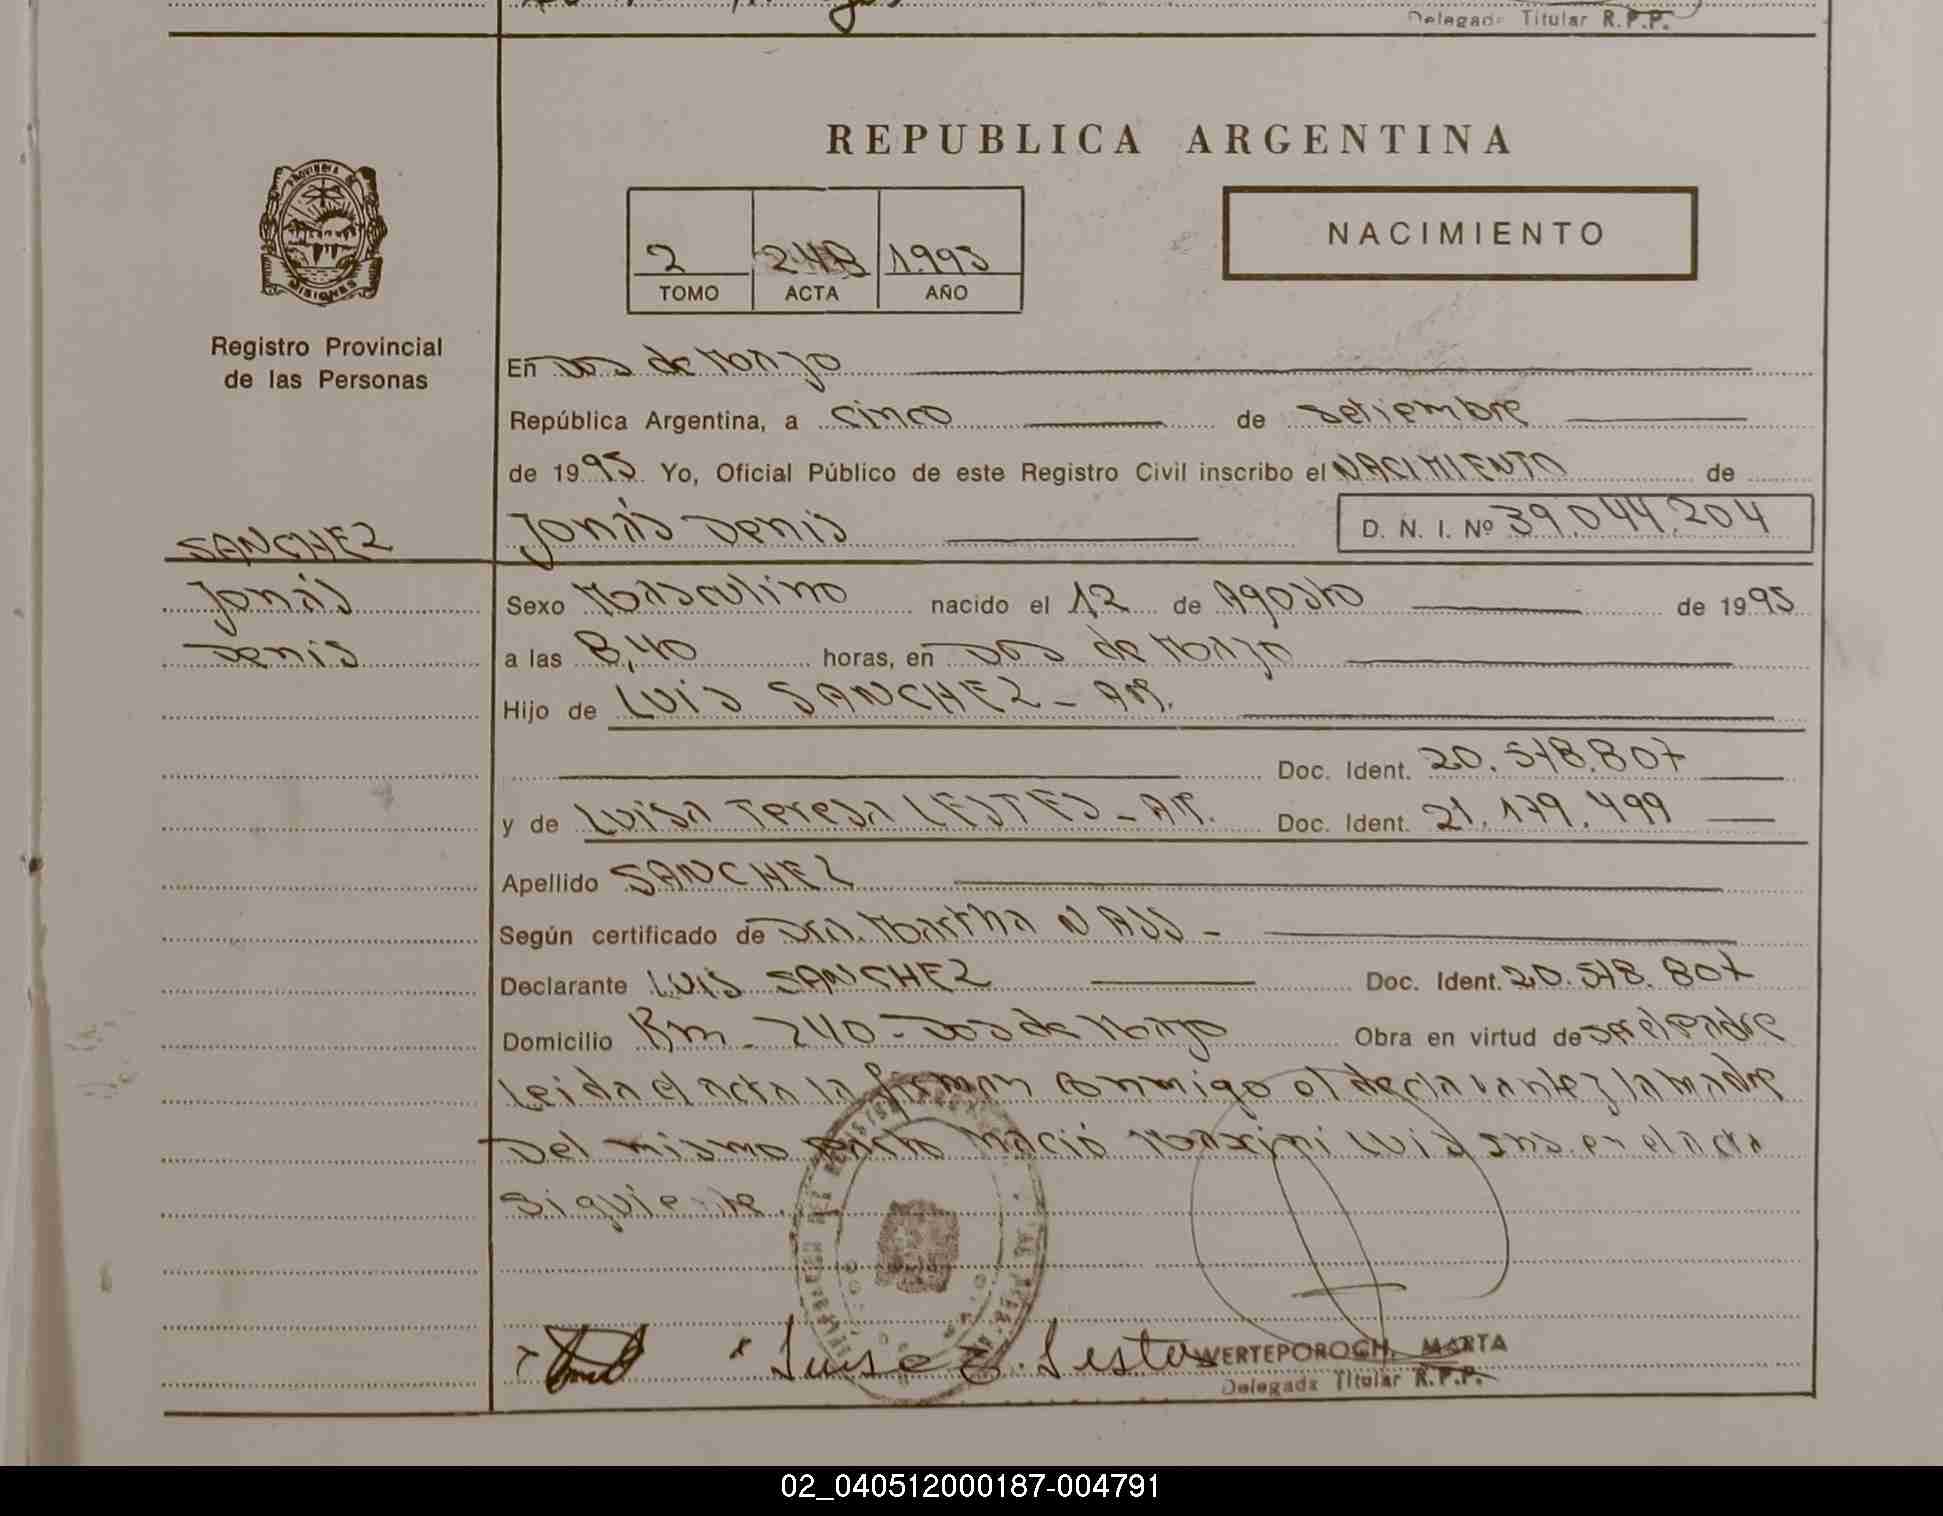 Delegada Titular R.P.P.
REPUBLICA ARGENTINA
PROVINCIA DE
MISIONES
2 248 1.995
TOMO ACTA AÑO
NACIMIENTO
Registro Provincial
de las Personas
En Dos de Mayo
República Argentina, a cinco de setiembre
de 1995 Yo, Oficial Público de este Registro Civil inscribo el NACIMIENTO de
SANCHEZ
Jonás Denis D. N. I. Nº 39.044.204
Jonás
Denis
Sexo Masculino nacido el 12 de Agosto de 1995
a las 8,40 horas, en Dos de Mayo
Hijo de Luis SANCHEZ - Ar.
Doc. Ident. 20.548.807
y de Luisa Teresa LESTES - Ar. Doc. Ident. 21.179.499
Apellido SANCHEZ
Según certificado de Dra. Martha NASS -
Declarante LUIS SANCHEZ Doc. Ident. 20.548.807
Domicilio Km. 240 - Dos de Mayo Obra en virtud de ser el padre
Leida el acta la firman conmigo el declarante y la madre
Del mismo parto nació Luis en el acta
siguiente.
Luisa T. Lestes
WERTEPOROCH, MARTA
Delegada Titular R.P.P.
02_040512000187-004791